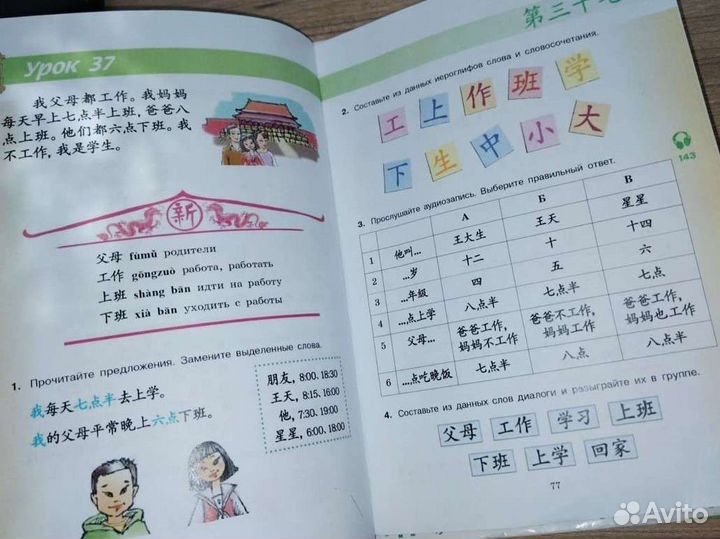 Урок 37
我父母都工作。我妈妈
每天早上七点半上班,爸爸八
点上班。他们都六点下班。我
不工作,我是学生。
新
父母 fùmǔ родители
工作 gōngzuò работа, работать
上班 shàng bān идти на работу
下班 xià bān уходить с работы
1. Прочитайте предложения. Замените выделенные слова.
我每天七点半去上学。
我的父母平常晚上六点下班。
朋友, 8:00. 18:30
王天, 8:15, 16:00
他, 7:30, 19:00
星星, 6:00, 18:00
第三十七
2. Составьте из данных иероглифов слова и словосочетания.
工 上 作 班 学
下 生 中 小 大
143
3. Прослушайте аудиозапись. Выберите правильный ответ.
А Б В
1 他叫... 王大生 王天 星星
2 ...岁 十二 十 十四
3 ...年级 四 五 六
4 ...点上学 八点半 七点半 七点
5 父母... 爸爸工作, 妈妈不工作 爸爸不工作, 妈妈工作 爸爸工作, 妈妈也工作
6 ...点吃晚饭 七点半 八点 八点半
4. Составьте из данных слов диалоги и разыграйте их в группе.
父母 工作 学习 上班
下班 上学 回家
77
Avito